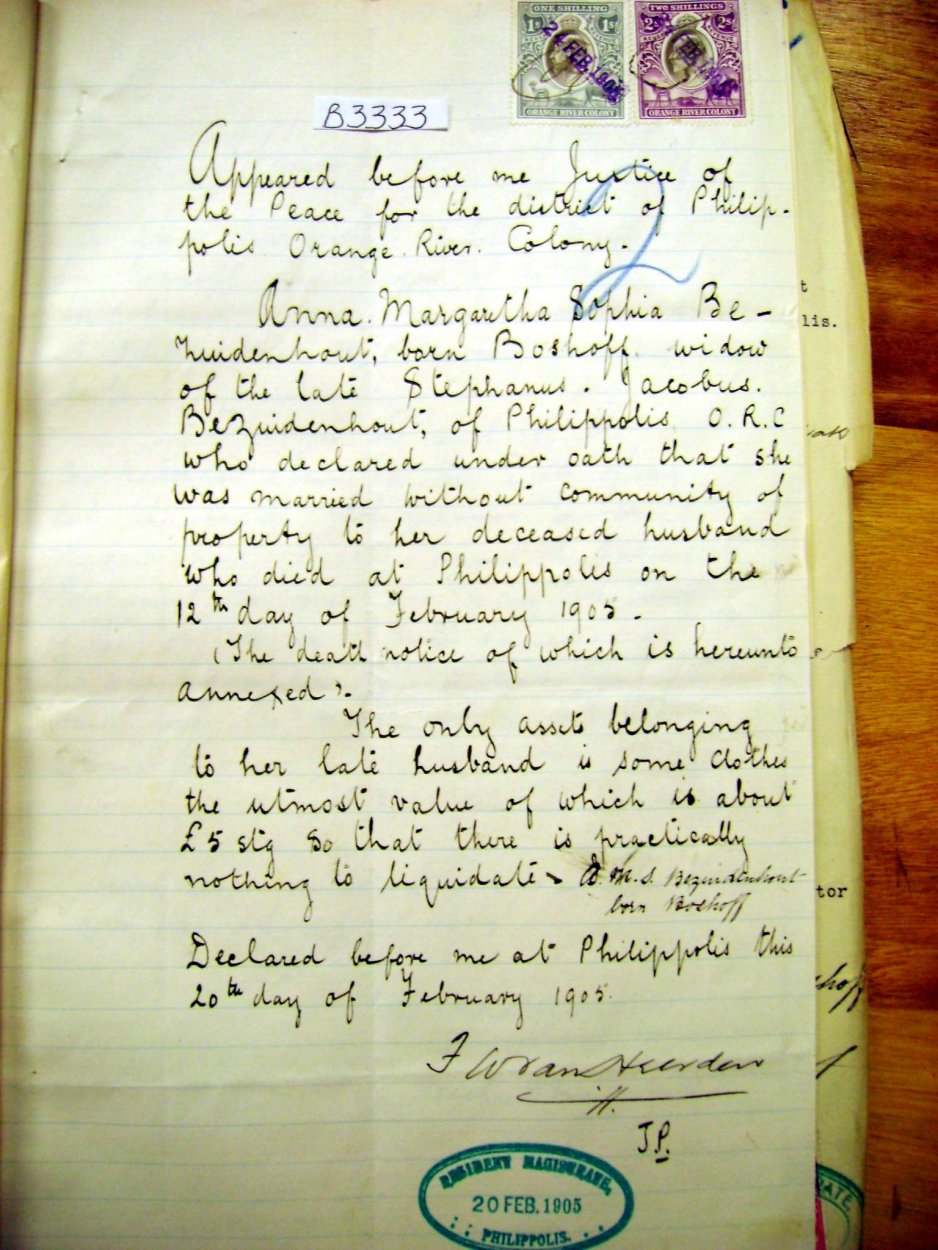 ONE SHILLING TWO SHILLINGS
1s 1s 2s 2s
ORANGE RIVER COLONY ORANGE RIVER COLONY
B3333
2
Appeared before me Justice of
the Peace for the district of Philip-
polis Orange River. Colony.
Anna. Margaretha Sophia Be-
zuidenhout, born Boshoff. widow
of the late Stephanus. Jacobus.
Bezuidenhout, of Philippolis O.R.C
who declared under oath that she
was married without community of
property to her deceased husband
who died at Philippolis on the
12th day of February 1905.
(The death notice of which is hereunto
annexed).
The only assets belonging
to her late husband is some clothes
the utmost value of which is about
£5 stg So that there is practically
nothing to liquidate - M.S. Bezuidenhout
born Boshoff
Declared before me at Philippolis this
20th day of February 1905.
F W van Heerden
J.P.
RESIDENT MAGISTRATE,
20 FEB. 1905
PHILIPPOLIS.
lis.
tor